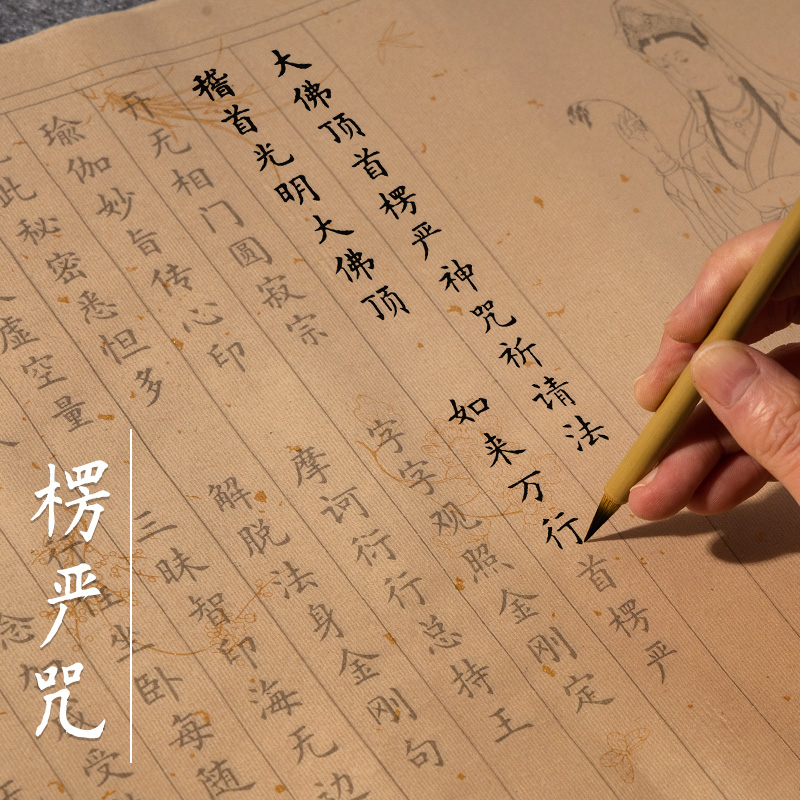 大佛顶首楞严神咒祈请法
稽首光明大佛顶 如来万行首楞严
开无相门圆寂宗 字字观照金刚定
瑜伽妙旨传心印 摩诃衍行总持王
此秘密悉怛多 解脱法身金刚句
虚空量 三昧智印海无边
行住坐卧每随
念加受
楞严咒